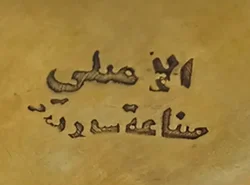 الأصلي
صناعة سورية